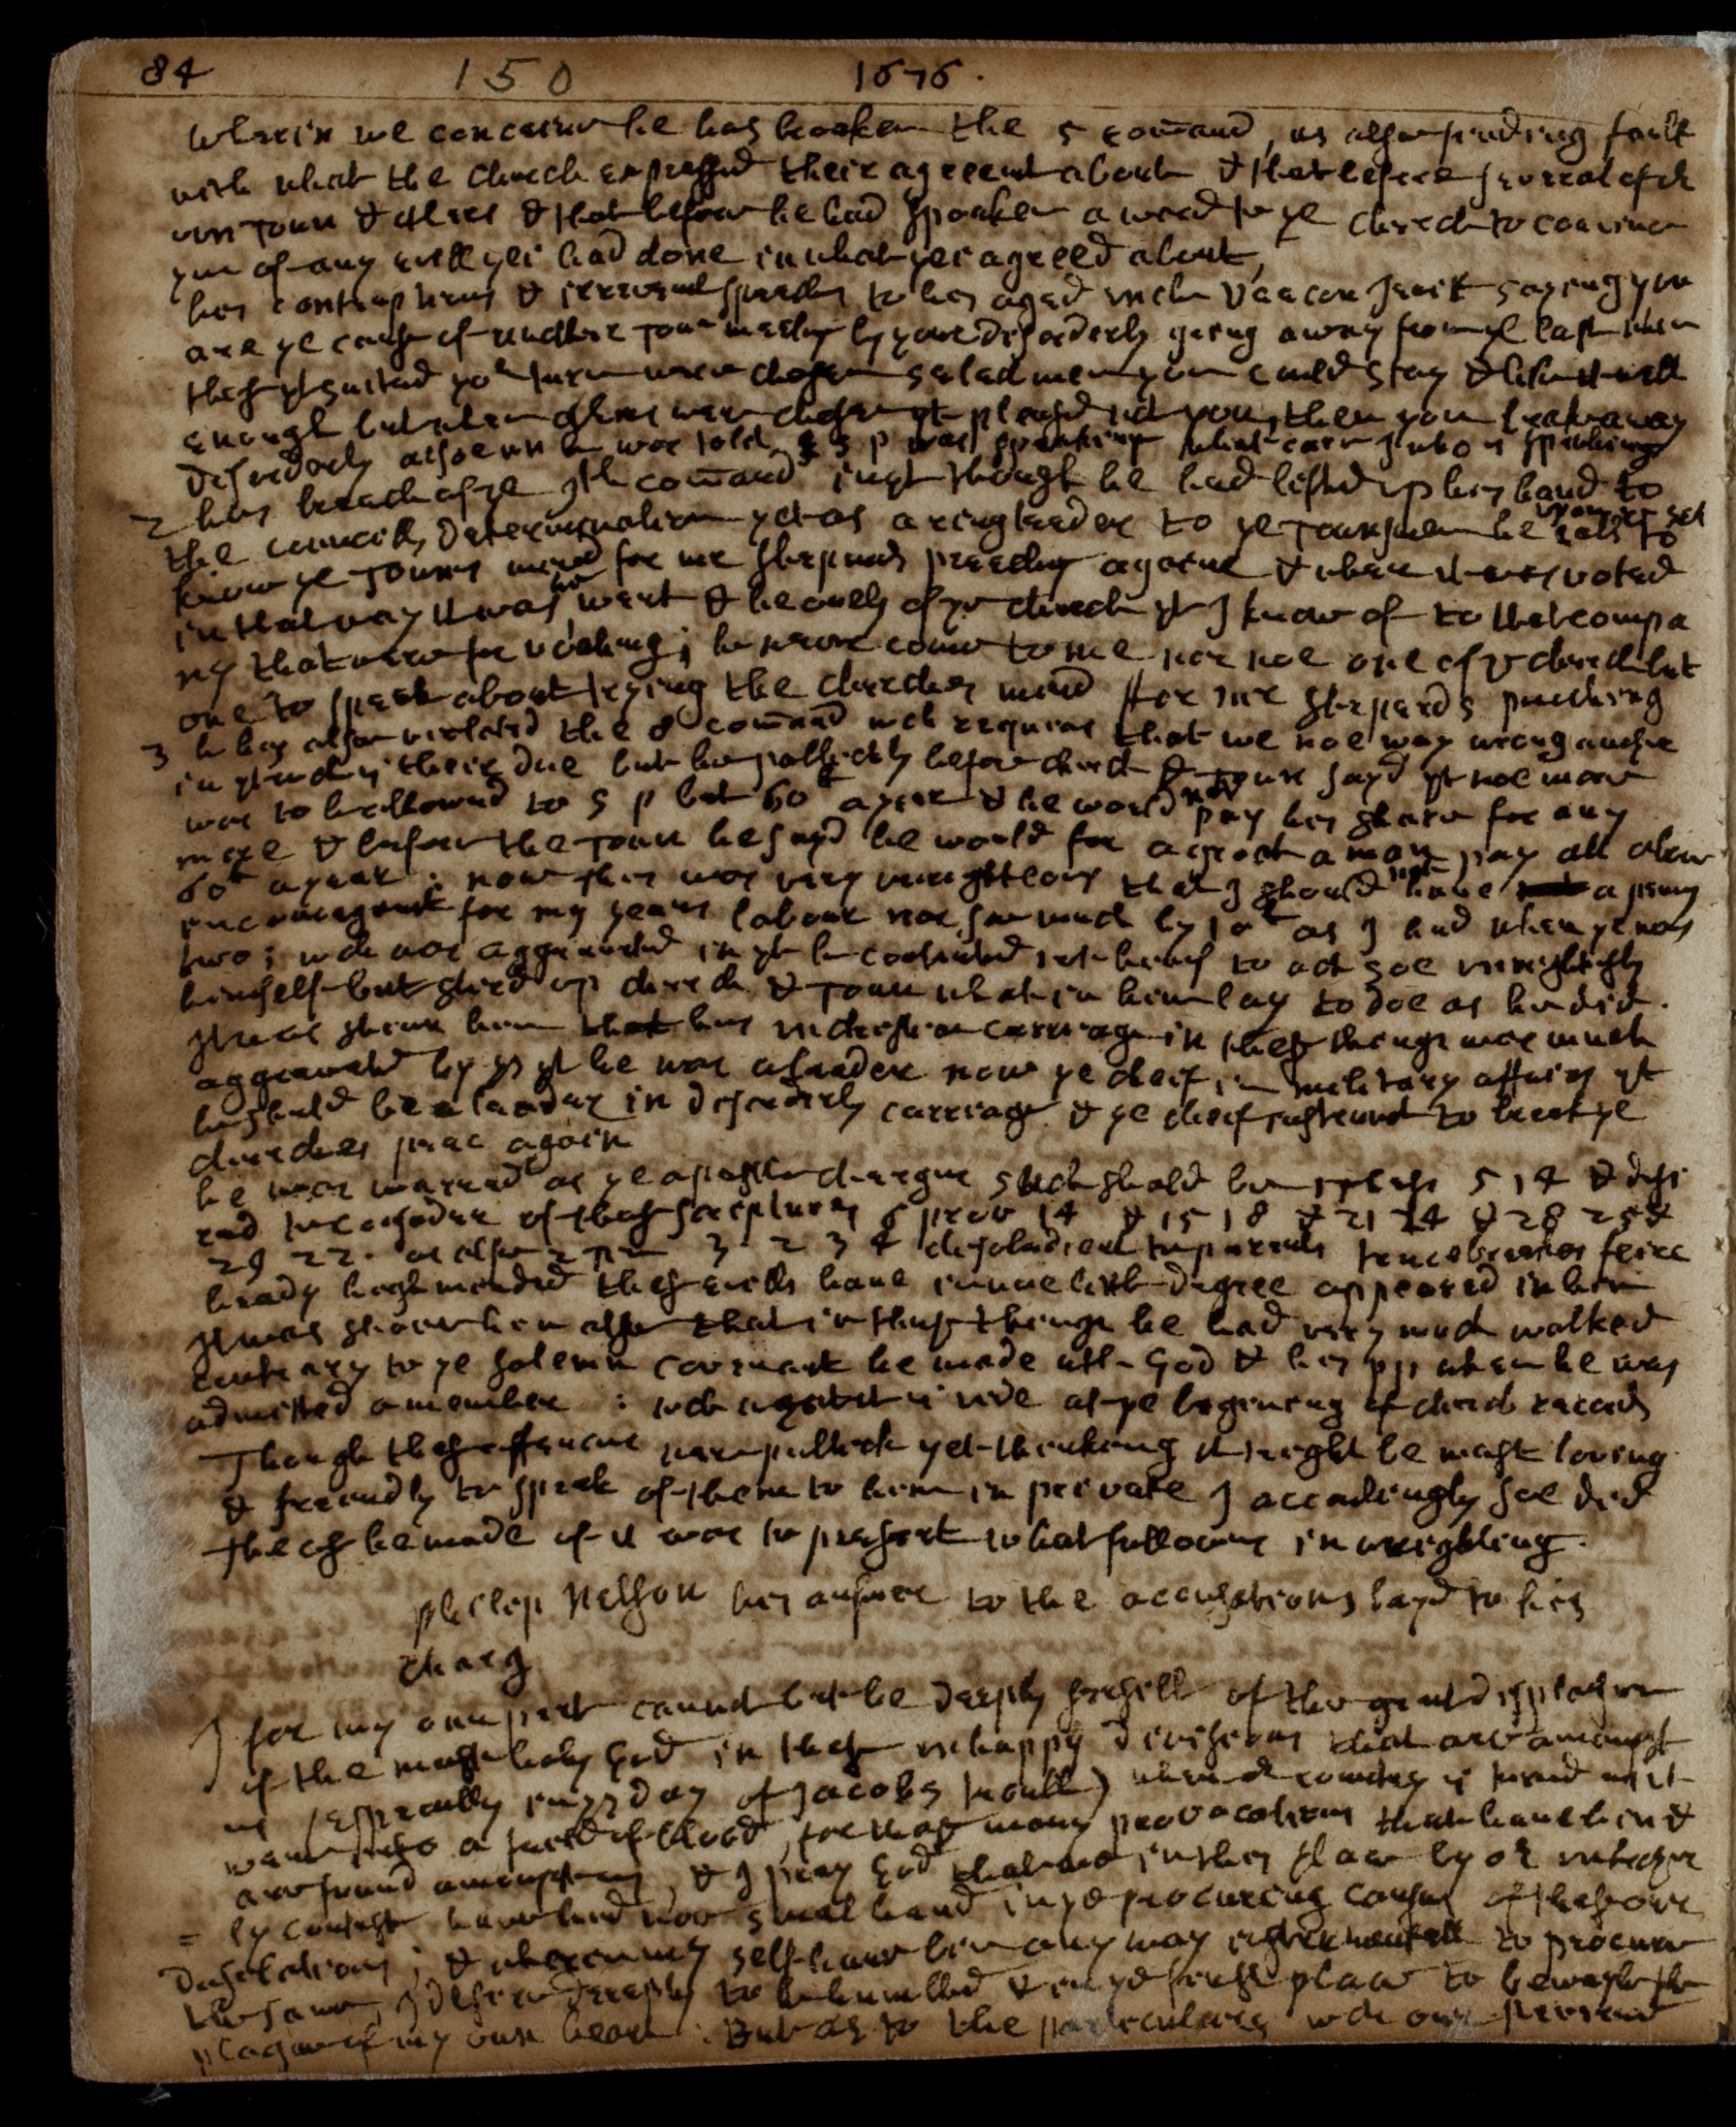 84 150 1676.
wherin we conceive he has brooken the 5 comand, as also finding fault
with what the church expressed their agreemt about & that before severall of
our Town & others & that before he had spooken a word to ye church to convince
ym of any evill yei had done in what yei agreed about,
his contemptuous & irreverend speeches to his aged uncle Deacon Jewit saying you
are ye cause of another Town meeting by your disorderly going away from ye last when
those yt suited yor turn were chosen selectmen you could stay & like it well
enough but when others were chosen yt pleased not you, then you brake away
disorderly also when he was told S P was speaking what care I who is speaking
2 his breach of ye 9th comand in yt though he had lifted up his hand to
the councills determination yet as a ringleader to ye Townsmen he calls to
know ye Townes mind for mr Shepards preaching againe & when it was voted
in that way it was, he went & he onely of ye church yt I know of to that compa
ny that were for voting; he never came to me nor noe one of ye church but
one to speak about trying the churches mind for mr Shepards preaching
3 he has also violated the 8 comand wch requires that we noe way wrong others
in their due but he publickly before church & Town sayd yt noe more
was to be allowed to S P but 60£ a year & he would not pay his share for any
more & before the Town he sayd he would for a groat a man pay all above
60£ a year: now this was very unrighteous that I should not have a peny
encouragemt for my years labour nor soe much by 10£ as I had when yr was
two; wch was aggravated in yt he contented not himself to act soe unrighteously
himself but stird up church & Town what in him lay to doe as he did.
It was shewn him that his undutifull carriage in these things was much
aggravated by ys yt he was a leader now ye cheif in military affairs yt
he should be a leader in disorderly carriage & ye cheif instrumt to break ye
churches peac again
he was warned as ye apostle charges such should be 1 thess 5 14 & desi
red to consider of these scriptures 6 prov 14 & 15 18 & 21 24 & 28 25 &
29 22. as also 2 Tim 3 2 3 4 disobedient to parents trucebreakers feirc
heady highminded these evills have in noe little degree appeared in him
It was shown him also that in these things he had very much walked
contrary to ye solemn covenant he made with God & his pp when he was
admitted a member: wch covenant is writ at ye begining of church records
Though these offences were publick yet thinking it might be most loving
& freindly to speak of them to him in private I accordingly soe did
The use he made of it was to present what followes in wrighting.
Phillip Nelson his answere to the accusations layd to his
charg
I for my own part cannot but be deeply sensible of the great displeasure
of the most holy God in these unhappy divisions that are amongst
us (especially in ys day of Jacobs trouble) when or countrey is turnd as it
were into a feild of blood, for those many provocations that have bin &
are found amongst us, & I pray God that we in this place by or
have had noe small hand in ye procuring cause of these our
desolations; & wherein my self have bin any way to procure
the same, I desire deeply to be humbled & in ye first place to bewayle the
plague of my own heart: But as to the particulars wch our Reverend